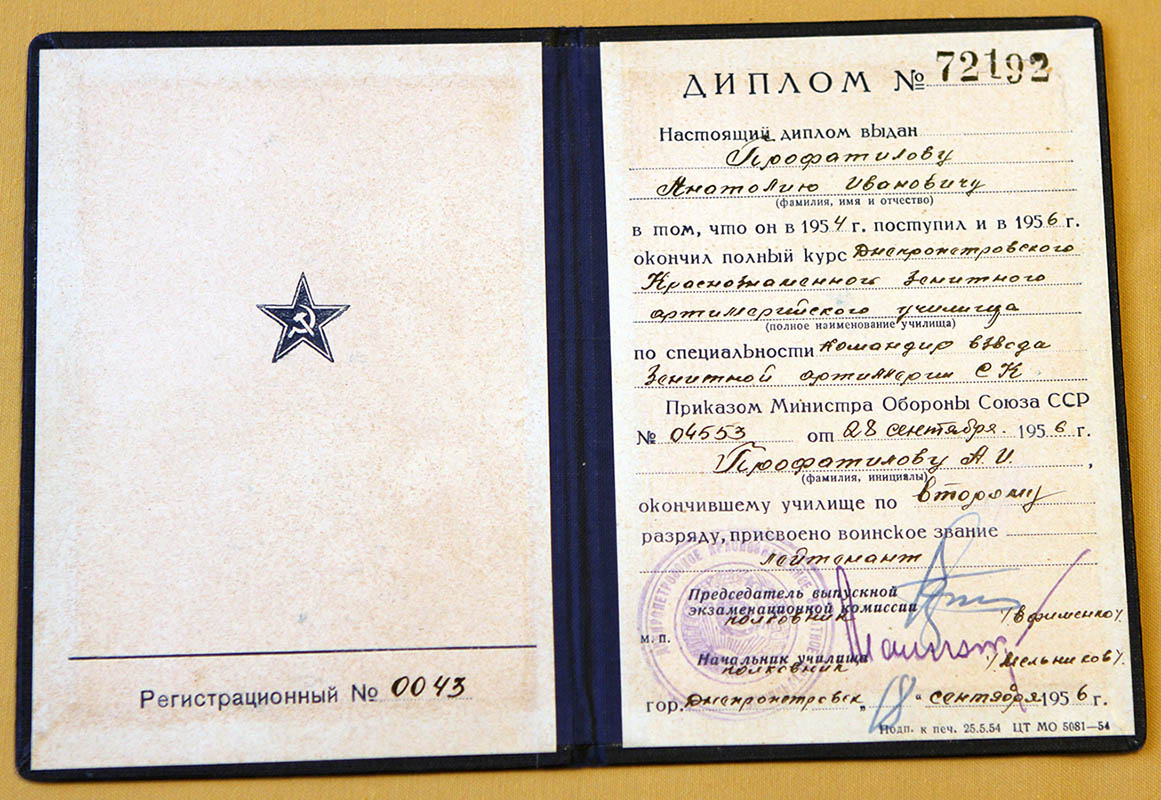 Регистрационный № 0043
ДИПЛОМ № 72192
Настоящий диплом выдан
Профатилову
Анатолию Ивановичу
(фамилия, имя и отчество)
в том, что он в 1954 г. поступил и в 1956 г.
окончил полный курс Днепропетровского
Краснознаменного Зенитного
артиллерийского училища
(полное наименование училища)
по специальности командир взвода
Зенитной артиллерии СК
Приказом Министра Обороны Союза ССР
№ 04553 от 28 сентября 1956 г.
Профатилову А. И.,
(фамилия, инициалы)
окончившему училище по второму
разряду, присвоено воинское звание
лейтенант
Председатель выпускной
экзаменационной комиссии
полковник /Ефименко/
м. п.
Начальник училища
полковник /Мельников/.
гор. Днепропетровск „18" сентября 1956 г.
Подп. к печ. 25.5.54 ЦТ МО 5081—54